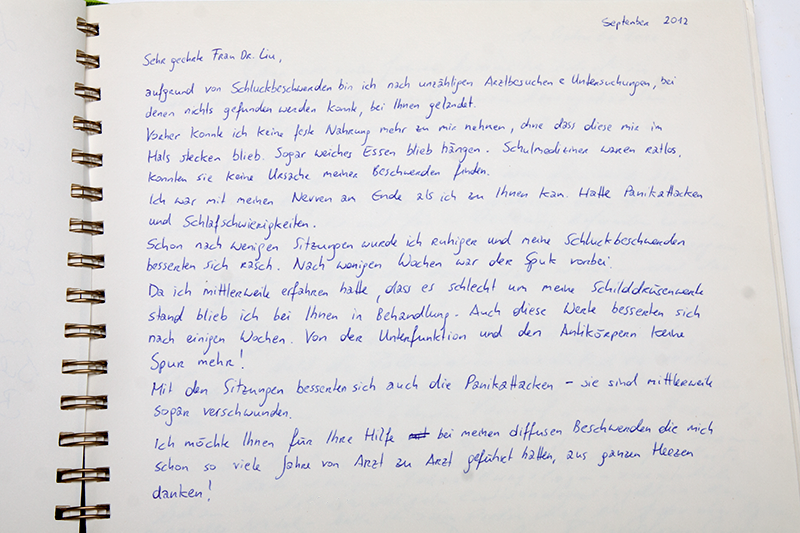 September 2012
Sehr geehrte Frau Dr. Liu,
aufgrund von Schluckbeschwerden bin ich nach unzähligen Arztbesuchen & Untersuchungen, bei
denen nichts gefunden werden konnte, bei Ihnen gelandet.
Vorher konnte ich keine feste Nahrung mehr zu mir nehmen, ohne dass diese mir im
Hals stecken blieb. Sogar weiches Essen blieb hängen. Schulmediziner waren ratlos,
konnten sie keine Ursache meiner Beschwerden finden.
Ich war mit meinen Nerven am Ende als ich zu Ihnen kam. Hatte Panikattacken
und Schlafschwierigkeiten.
Schon nach wenigen Sitzungen wurde ich ruhiger und meine Schluckbeschwerden
besserten sich rasch. Nach wenigen Wochen war der Spuk vorbei!
Da ich mittlerweile erfahren hatte, dass es schlecht um meine Schilddrüsenwerte
stand blieb ich bei Ihnen in Behandlung. Auch diese Werte besserten sich
nach einigen Wochen. Von der Unterfunktion und den Antikörpern keine
Spur mehr!
Mit den Sitzungen besserten sich auch die Panikattacken – sie sind mittlerweile
sogar verschwunden.
Ich möchte Ihnen für Ihre Hilfe bei meinen diffusen Beschwerden die mich
schon so viele Jahre von Arzt zu Arzt geführt hatten, aus ganzen Herzen
danken!